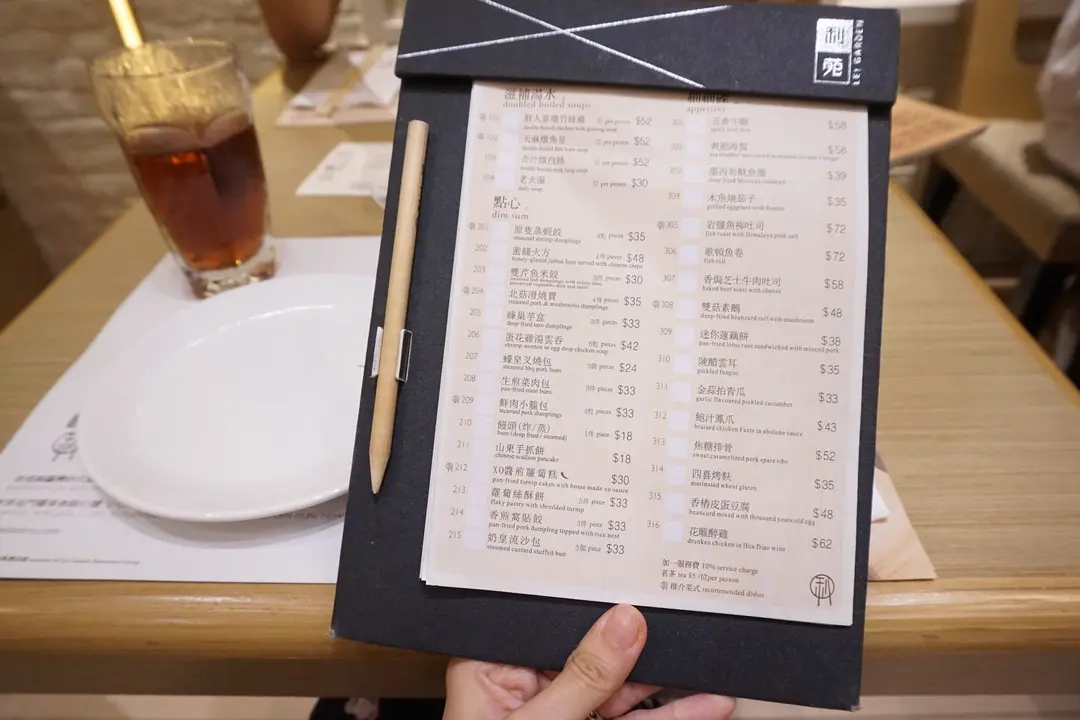 利苑
LEI GARDEN
滋補湯水
doubled boiled soups
101 per person $52
double boiled chicken with ginseng soup
102 天麻燉魚
per person $52
103 杏汁燉白肺 per person $52
104 老火湯 per person $30
daily soup
點心
dim sum
201 原隻蒸蝦餃 4粒 pieces $35
steamed shrimp dumplings
202 蜜餞火方 pieces $48
honey-glazed ham served with chinese crepe
203 雙芹魚米餃 pieces $30
204 北菇滑燒賣 4件 pieces $35
steamed pork & mushrooms dumplings
205 蜂巢芋盒 3件 pieces $33
deep-fried taro dumplings
206 蛋花雞湯雲呑 6粒 pieces $42
shrimp wonton in egg drop chicken soup
207 蠔皇叉燒包 pieces $24
steamed bbq pork buns
208 生煎菜肉包 3件 pieces $33
pan-fried meat buns
209 鮮肉小籠包 4粒 pieces $33
steamed pork dumplings
210 饅頭(炸/蒸) 1件 piece $18
buns (deep fried / steamed)
211 山東手抓餅 $18
chinese scallion pancake
212 XO醬煎蘿蔔糕 $30
pan-fried turnip cakes with home made xo sauce
213 蘿蔔絲酥餅 3件 piece $33
flaky pastry with shredded turnip
214 香煎窩貼餃 3件 piece $33
pan-fried pork dumpling topped with rice nest
215 奶皇流沙包 3個 piece $33
steamed custard stuffed bun
appetizer
301 五香牛𦟌 $58
302 爽脆海蜇 $58
303 墨西哥魷魚鬚 $39
304 木魚燒茄子 $35
grilled eggplant with bonito
305 岩鹽魚柳吐司 $72
fish toast with Himalaya pink salt
306 歌頓魚卷 $72
fish roll
307 香焗芝士牛肉吐司 $58
baked beef toast with cheese
308 雙菇素鵝 $48
deep-fried beancurd roll with mushroom
309 迷你蓮藕餅 $38
pan-fried lotus root sandwiched with minced pork
310 陳醋雲耳 $35
pickled fungus
311 金蒜拍青瓜 $33
garlic flavoured pickled cucumber
312 鮑汁鳳爪 $43
braised chicken Feets in abalone sauce
313 焦糖排骨 $52
sweet caramelized pork spare ribs
314 四喜烤麩 $35
marinated wheat gluten
315 香椿皮蛋豆腐 $48
beancurd mixed with thousand years old egg
316 花雕醉雞 $62
drunken chicken in Hua Diao wine
加一服務費 10% service charge
茗茶 tea $5 /位per person
推介菜式 recommended dishes